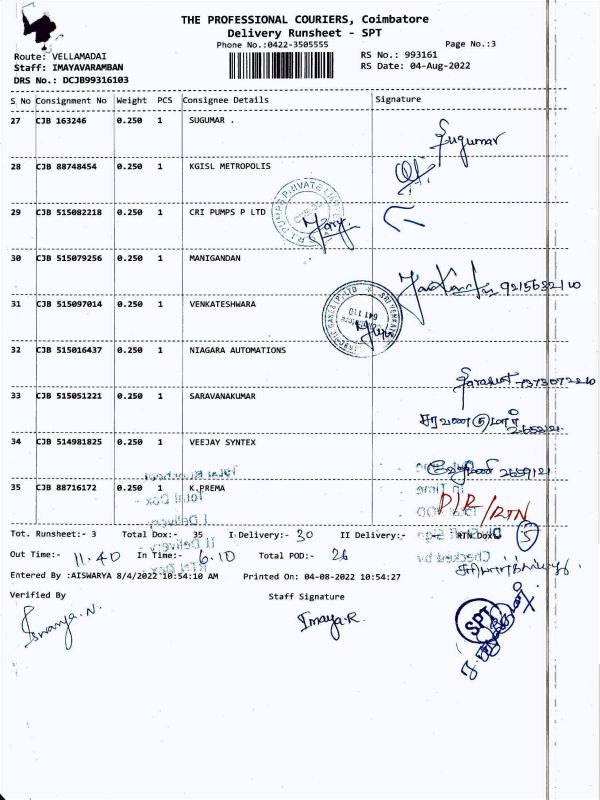 THE PROFESSIONAL COURIERS, Coimbatore
Delivery Runsheet - SPT
Phone No.:0422-3505555 Page No.:3
Route: VELLAMADAI RS No.: 993161
Staff: IMAYAVARAMBAN RS Date: 04-Aug-2022
DRS No.: DCJB99316103
S No Consignment No Weight PCS Consignee Details Signature
27 CJB 163246 0.250 1 SUGUMAR . Sugumar
28 CJB 88748454 0.250 1 KGISL METROPOLIS
29 CJB 515082218 0.250 1 CRI PUMPS P LTD
30 CJB 515079256 0.250 1 MANIGANDAN
31 CJB 515097014 0.250 1 VENKATESHWARA
32 CJB 515016437 0.250 1 NIAGARA AUTOMATIONS
33 CJB 515051221 0.250 1 SARAVANAKUMAR
34 CJB 514981825 0.250 1 VEEJAY SYNTEX
35 CJB 88716172 0.250 1 K.PREMA D/R/RTN
Tot. Runsheet:- 3 Total Dox:- 35 I Delivery:- 30 II Delivery:- RTN Dox:- 5
Out Time:- 11.40 In Time:- 6.10 Total POD:- 26
Entered By :AISWARYA 8/4/2022 10:54:10 AM Printed On: 04-08-2022 10:54:27
Verified By Staff Signature
Imaya.R.
SPT